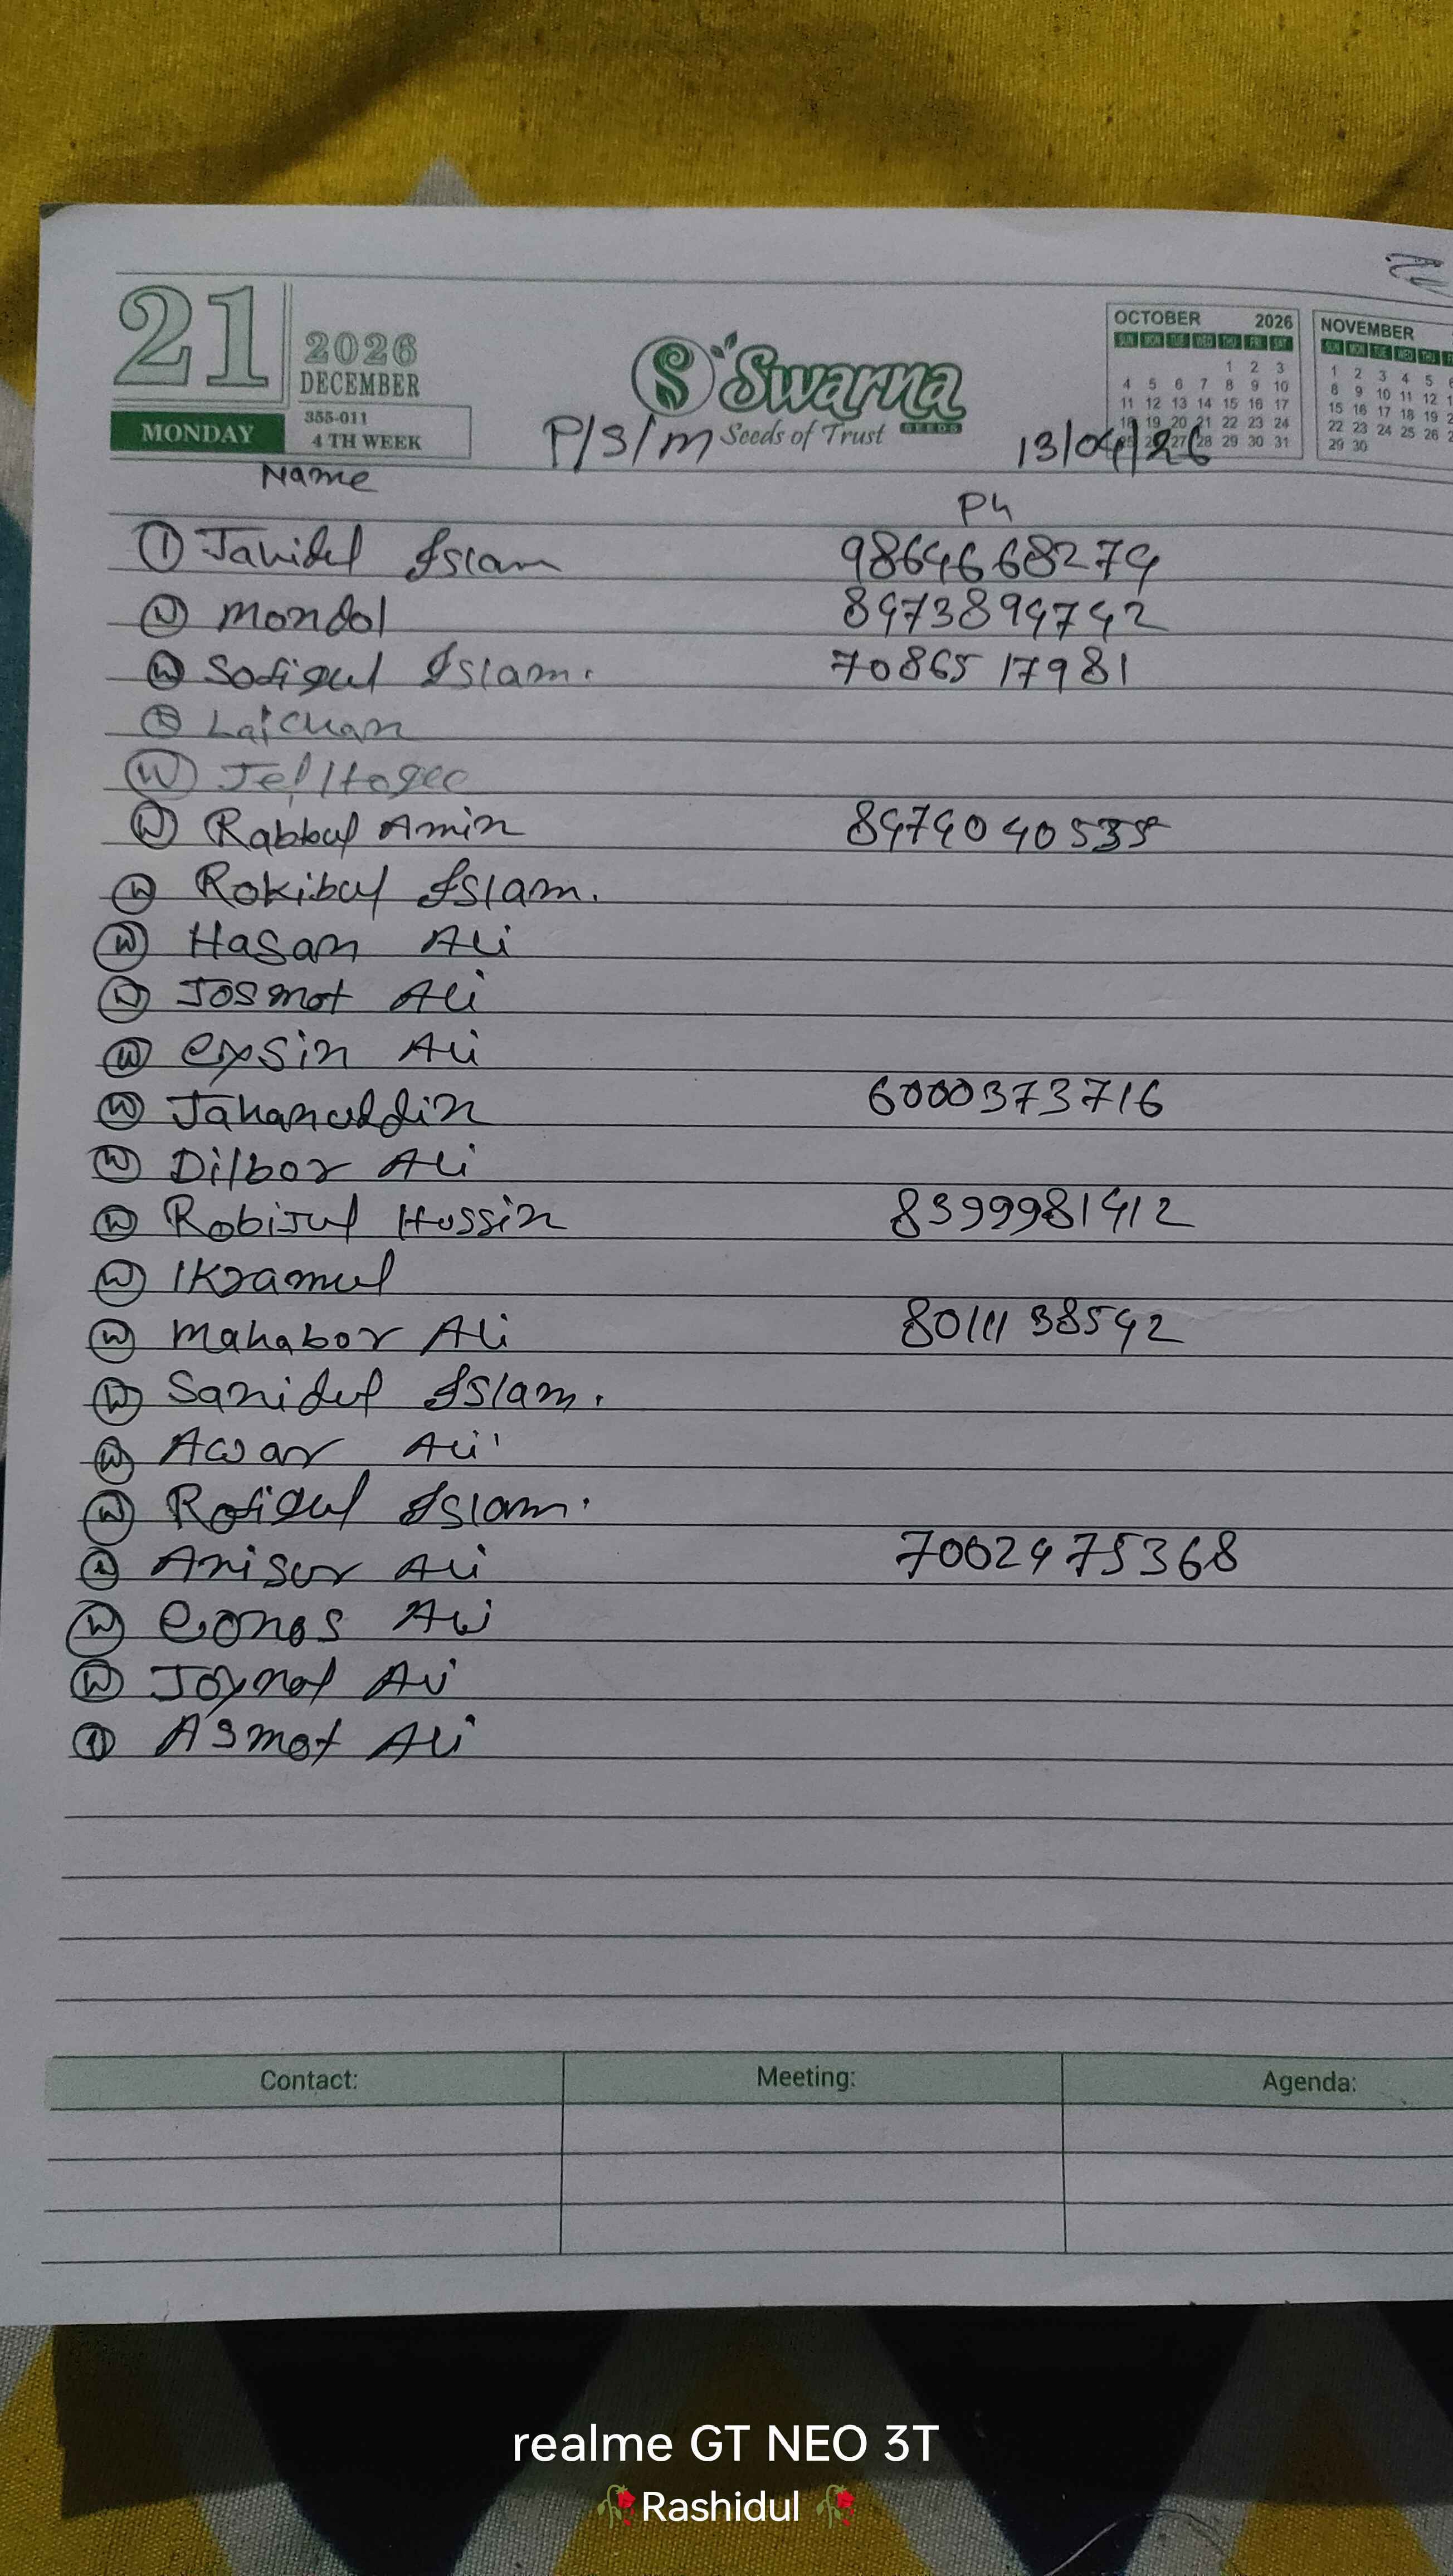 21
2026
DECEMBER
MONDAY
355-011
4 TH WEEK
Swarna
SEEDS
Seeds of Trust
P/S/m
13/04/26
OCTOBER 2026
SUN MON TUE WED THU FRI SAT
1 2 3
4 5 6 7 8 9 10
11 12 13 14 15 16 17
18 19 20 21 22 23 24
27 28 29 30 31
NOVEMBER
SUN MON TUE WED THU
1 2 3 4 5
8 9 10 11 12
15 16 17 18 19
22 23 24 25 26
29 30
Name
Ph
① Jahidul Islam 9864668274
mondal 8473894742
Sofiqul Islam. 7086517981
Lalchan
Jel Hoque
Rabbul Amin 8474040535
Rokibul Islam.
Hasan Ali
Josmot Ali
Exsin Ali
Jahanuddin 6000373716
Dilbor Ali
Robijul Hossin 8399981412
Ikramul
mahabor Ali 8011138542
Sanidul Islam.
Awar Ali
Rofiqul Islam.
Anisur Ali 7002475368
Eonos Ali
Joynal Ali
① Asmot Ali
Contact: Meeting: Agenda:
realme GT NEO 3T
🥀Rashidul🥀